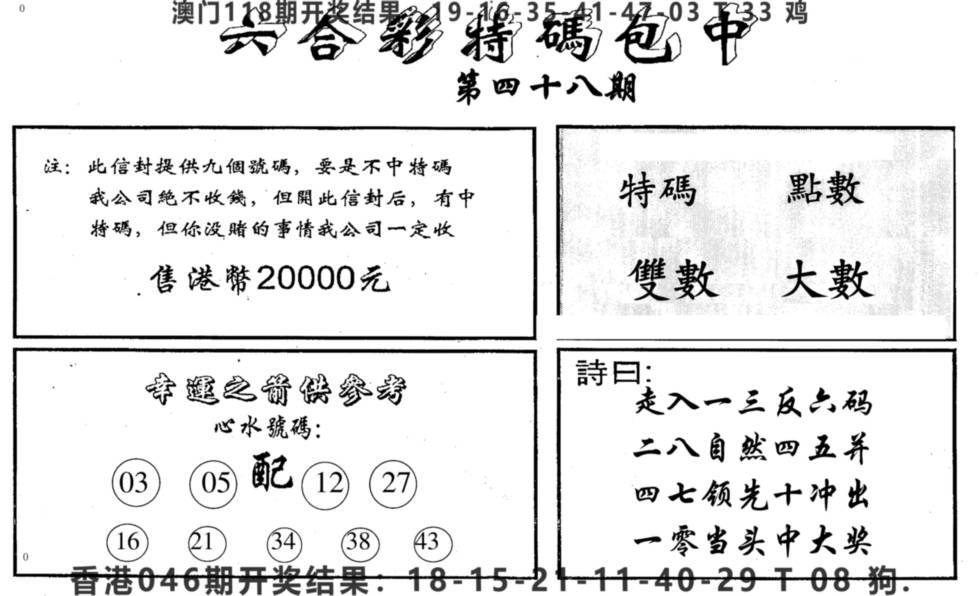 0
澳门118期开奖结果 19-16-35-41-47-03 T 33 鸡
六合彩特碼包中
第四十八期
注：此信封提供九個號碼，要是不中特碼
我公司絕不收錢，但開此信封后，有中
特碼，但你没賭的事情我公司一定收
售港幣20000元
特碼 點數
雙數 大數
幸運之箭供參考
心水號碼：
03 05 配 12 27
16 21 34 38 43
詩曰：
走入一三反六码
二八自然四五并
四七领先十冲出
一零当头中大奖
0
香港046期开奖结果：18-15-21-11-40-29 T 08 狗.